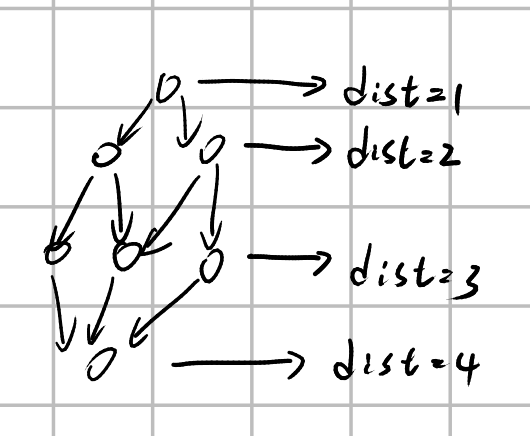 dist=1
dist=2
dist=3
dist=4